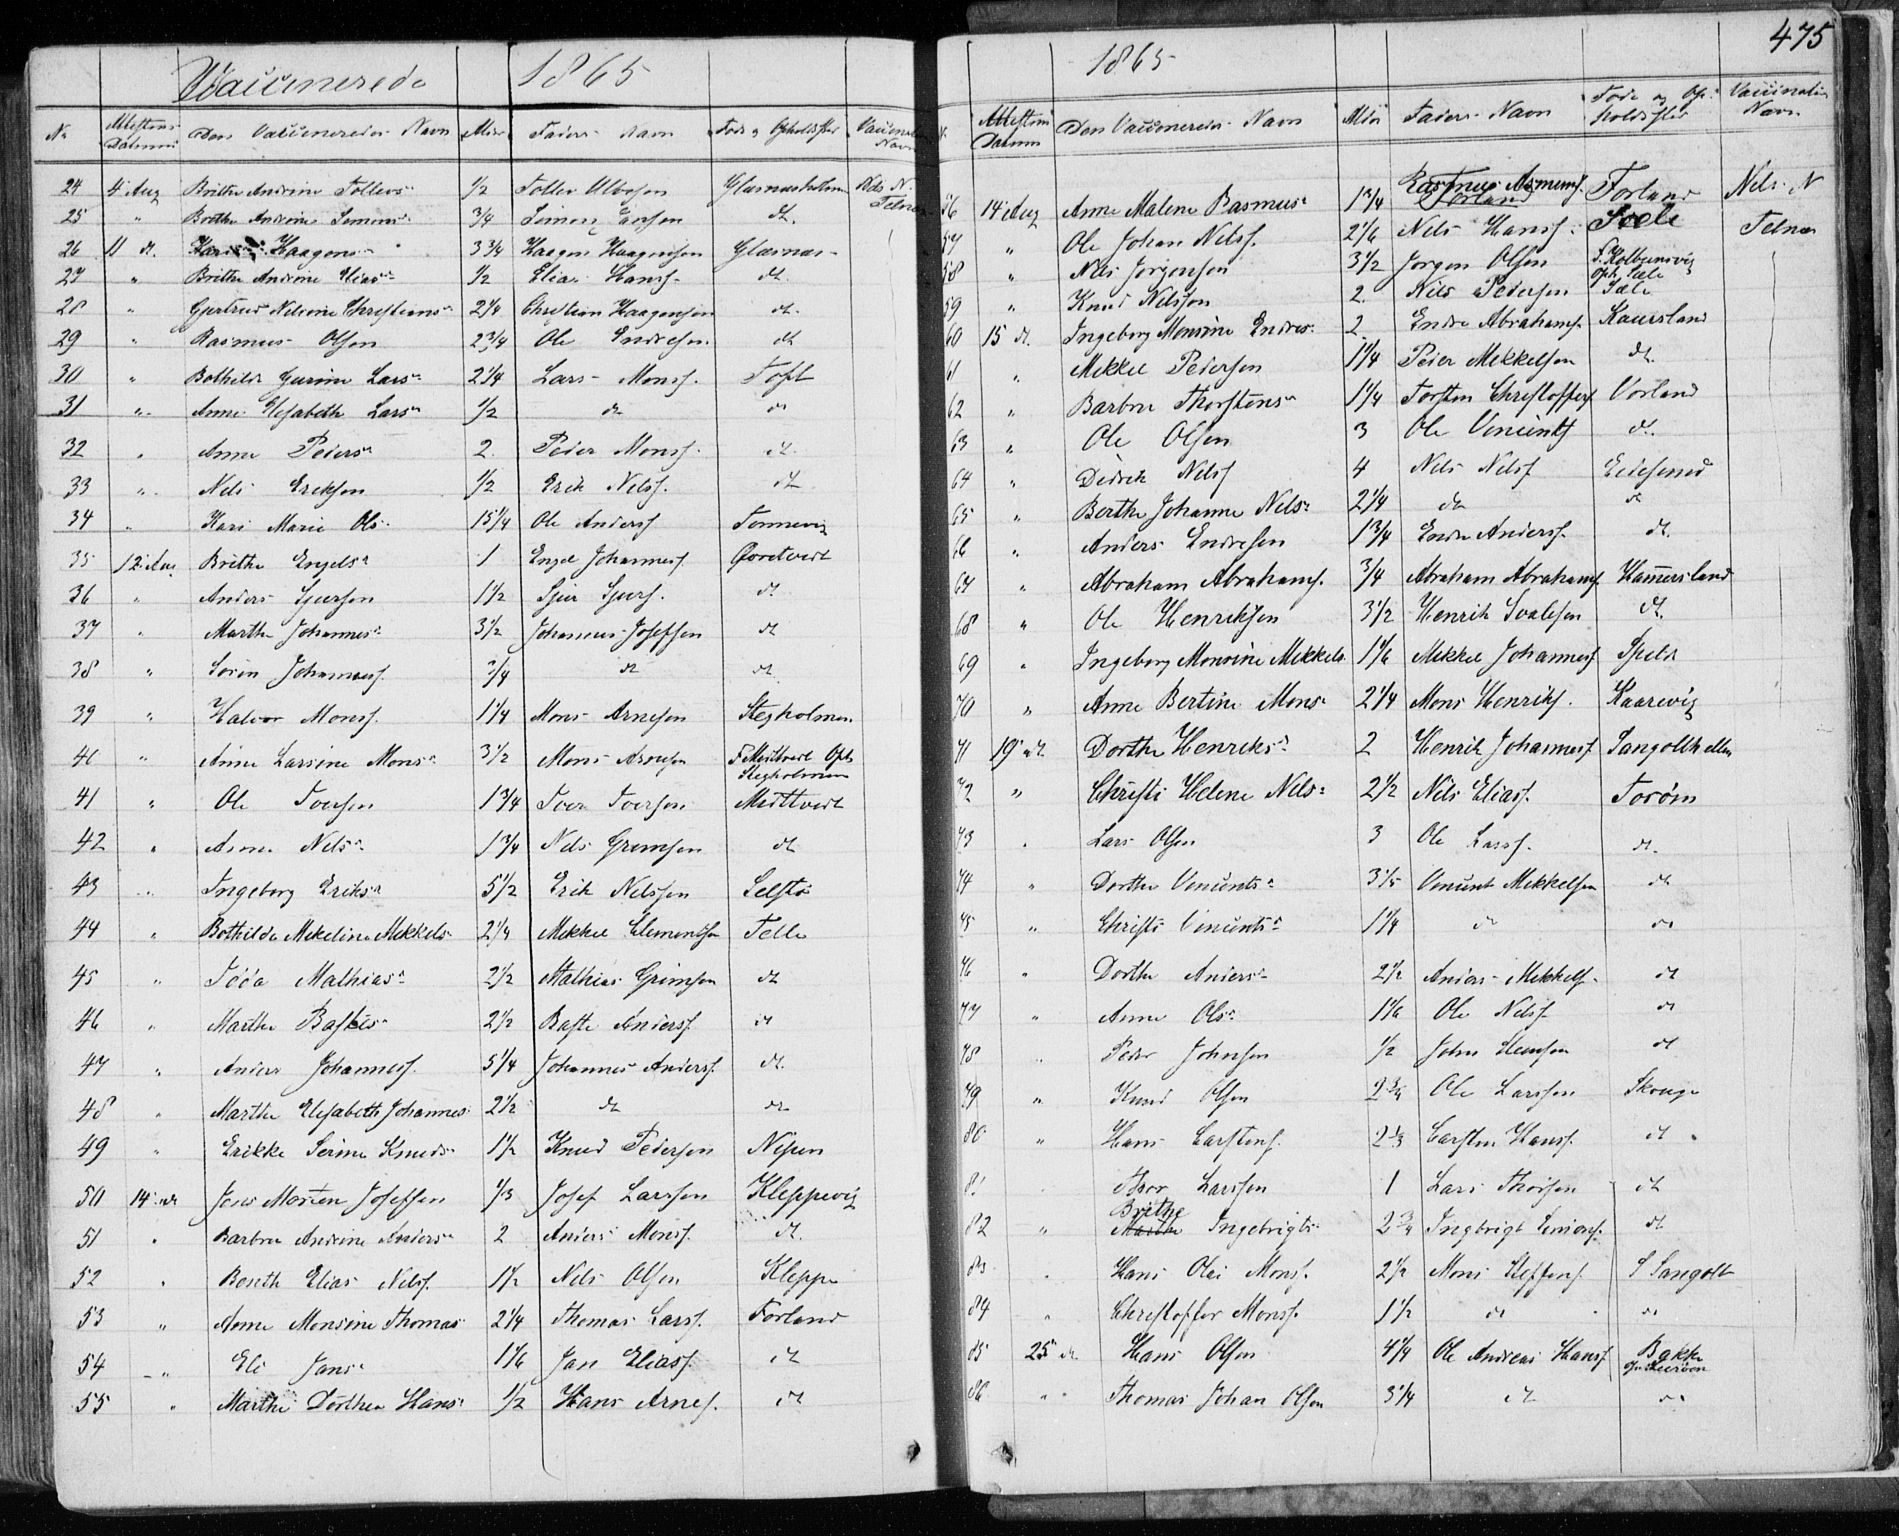 475
Vaccinerede 1865
No Attestens Datum Den Vaccineredes Navn Alder Faders Navn Føde og Opholdssted Vaccinateur Navn
24 4 Aug Brithe Andrine Tollevs 1/2 Tollev Glæsnæsholmen Nels N. Telnæs
25 " Brithe Andrine Simons 3/4 Simon Hansen dt
26 11 dt. Haagens 3 3/4 Haagen Haagensen Glæsnæs
27 " Brithe Andrine Elias 1/2 Elias Hans. dt.
28 " Gjertrud Nelsine Christians 2 1/4 Christian Haagensen dt.
29 " Rasmus Olsen 2 3/4 Ole Endresen dt
30 " Bothilde Gurine Lars 2 1/4 Lars Monss. Toft
31 " Anne Elisabeth Lars 1/2 dt dt
32 " Anne Peders 2 Peder Monss. dt.
33 " Nels Eriksen 1/2 Erik Nelss. dt
34 " Kari Marie Ols 15 1/4 Ole Anderss Tømmervig
35 12 Aug Brithe Engels 1 Engel Johanness
36 " Anders Sjursen 1 1/2 Sjur Sjurs. dt
37 " Marthe Johannes 3 1/2 Johannes Josefsen dt
38 " Søren Johanness. 3/4 dt dt.
39 " Halvor Monss. 1 1/4 Mons Arnesen Stegholmen
40 " Anne Larsine Mons 3 1/2 Mons Arnesen F. Midttveit Oph. Stegholmen
41 " Ole Iversen 1 3/4 Iver Iversen Midttveit
42 " Anne Nels 1 3/4 Nels Grimsen dt
43 " Ingeborg Eriks 5 1/2 Erik Nelssen Selstø
44 " Bothilde Mekeline Mekkels 2 1/4 Mekkel Clementsen Telle
45 " Mathias 2 1/2 Mathias Grimsen dt
46 " Marthe Bastes 2 1/2 Baste Anderss. dt
47 " Anders Johanness. 5 1/4 Johannes Anderss. dt.
48 " Marthe Elisabeth Johannes 2 1/2 dt dt
49 " Erikke Serine Knuds 1 1/2 Knud Pedersen Nipen
50 14 dt Jens Morten Josefsen 1/3 Josef Larssen Kleppevig
51 " Barbru Andrine Anders 2 Anders Monss. dt.
52 " Bendth Elias Nelss. 1 1/2 Nels Olsen Kleppe
53 " Anne Monsine Thomas 2 1/4 Thomas Larss. Forland
54 " Eli Jans 1 1/6 Jan Eliass. dt
55 " Marthe Dorthea Hans 1/2 Hans Arnes. dt
1865
No Attestens Datum Den Vaccineredes Navn Alder Faders Navn Føde og Opholdssted Vaccinateur Navn
56 14 Aug Anne Malene Rasmus 1 3/4 Rasmus Asmunds. Forland Nels N
57 " Ole Johan Nelss. 2 1/6 Nels Hanss. Sæle Telnæs
58 " Nels Jørgensen 3 1/2 Jørgen Olsen F. Kolbeinsvig Oph. Sæle
59 " Knud Nelssen 2 Nels Pedersen Sæle
60 15 dt. Ingeborg Monsine Endres 2 Endre Abrahams. Kauersland
61 " Mekkel Pedersen 1 1/4 Peder Mekkelsen dt.
62 " Barbru Thorstens 1 1/4 Torsten Christoffers Vorland
63 " Ole Olsen 3 Ole Vincents dt.
64 " Didrik Nelss 4 Nels Nelss Eidesund
65 " Berthe Johanne Nels 2 1/4 dt dt
66 " Anders Endresen 1 3/4 Endre Anderss. dt.
67 " Abraham Abrahams. 3/4 Abraham Abrahams. Hammersland
68 " Ole Henriksen 3 1/2 Henrik dt.
69 " Ingeborg Monsine Mekkels 1 1/6 Mekkel Johanness. Speld
70 " Anne Bertine Mons 2 1/4 Mons Henriks. Kaarevig
71 19 dt. Dorthe Henriks 2 Henrik Johanness. Sangolthellen
72 " Christi Helene Nels 2 1/2 Nils Eliass. Torøen
73 " Lars Olsen 3 Ole Larss. dt.
74 " Dorthe Vincents 3 1/5 Vincent Mekkelsen dt
75 " Christi Vincents 1 1/4 dt dt
76 " Dorthe Anders 2 1/2 Anders Mekkels. dt
77 " Anne Ols 1 1/6 Ole Nelss. dt
78 " Peder Johnsen 1/2 John dt
79 " Knud Olsen 2 3/4 Ole Larssen Skouge
80 " Hans Carstens. 2 1/3 Carsten Hanss. dt
81 " Thor Larssen 1 Lars Thorsen dt
82 " Brithe Ingebrigts 2 3/4 Ingbrigt Simons. dt
83 " Hans Olai Monss. 2 1/2 Mons Steffens. S Sangolt
84 " Christoffer Monss. 1 1/2 dt dt
85 25 dt Hans Olsen 4 1/4 Ole Andreas Hanss. Bakke
86 " Thomas Johan Olsen 3 1/4 dt dt